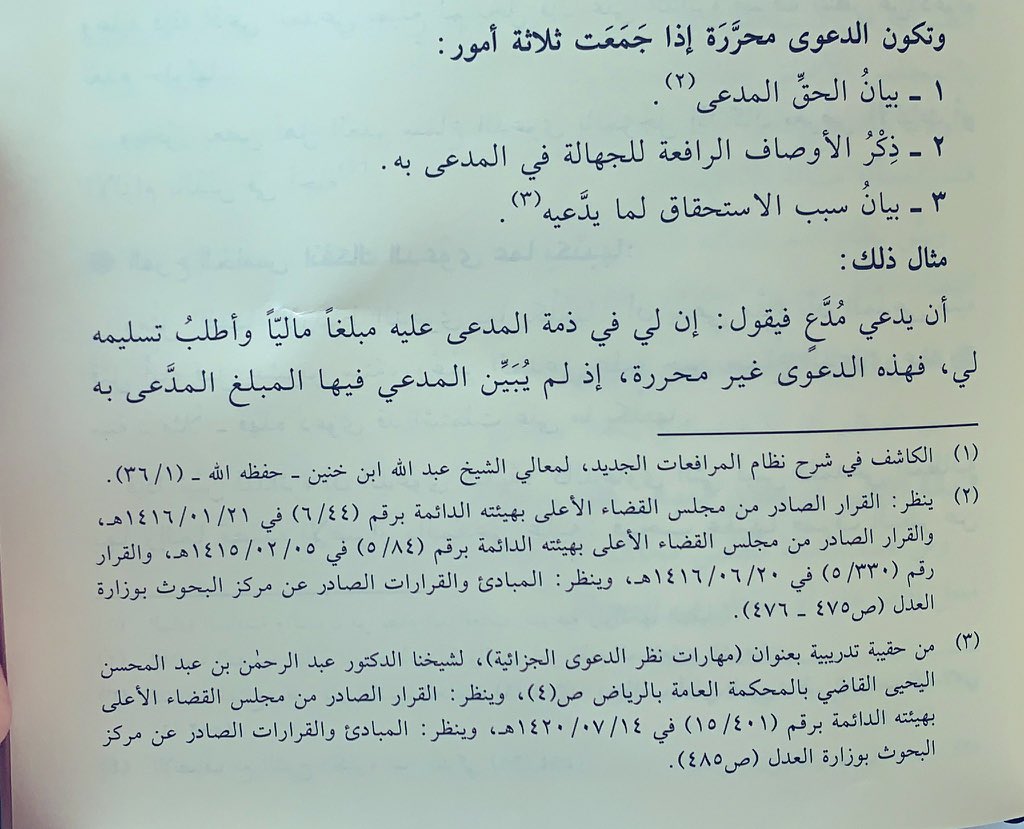 وتكون الدعوى محرَّرَة إذا جَمَعَت ثلاثة أمور:
١ ـ بيانُ الحقِّ المدعى(٢).
٢ ـ ذِكْرُ الأوصاف الرافعة للجهالة في المدعى به.
٣ ـ بيانُ سبب الاستحقاق لما يدَّعيه(٣).
مثال ذلك:
أن يدعي مُدَّعٍ فيقول: إن لي في ذمة المدعى عليه مبلغاً ماليّاً وأطلبُ تسليمه
لي، فهذه الدعوى غير محررة، إذ لم يُبَيِّن المدعي فيها المبلغ المدَّعى به
(١) الكاشف في شرح نظام المرافعات الجديد، لمعالي الشيخ عبد الله ابن خنين ـ حفظه الله ـ (٣٦/١).
(٢) ينظر: القرار الصادر من مجلس القضاء الأعلى بهيئته الدائمة برقم (٦/٤٤) في ١٤١٦/٠١/٢١هـ،
والقرار الصادر من مجلس القضاء الأعلى بهيئته الدائمة برقم (٥/٨٤) في ١٤١٥/٠٢/٠٥هـ، والقرار
رقم (٥/٣٣٠) في ١٤١٦/٠٦/٢٠هـ، وينظر: المبادئ والقرارات الصادر عن مركز البحوث بوزارة
العدل (ص٤٧٥ ـ ٤٧٦).
(٣) من حقيبة تدريبية بعنوان (مهارات نظر الدعوى الجزائية)، لشيخنا الدكتور عبد الرحمٰن بن عبد المحسن
اليحيى القاضي بالمحكمة العامة بالرياض ص(٤)، وينظر: القرار الصادر من مجلس القضاء الأعلى
بهيئته الدائمة برقم (١٥/٤٠١) في ١٤٢٠/٠٧/١٤هـ، وينظر: المبادئ والقرارات الصادر عن مركز
البحوث بوزارة العدل (ص٤٨٥).